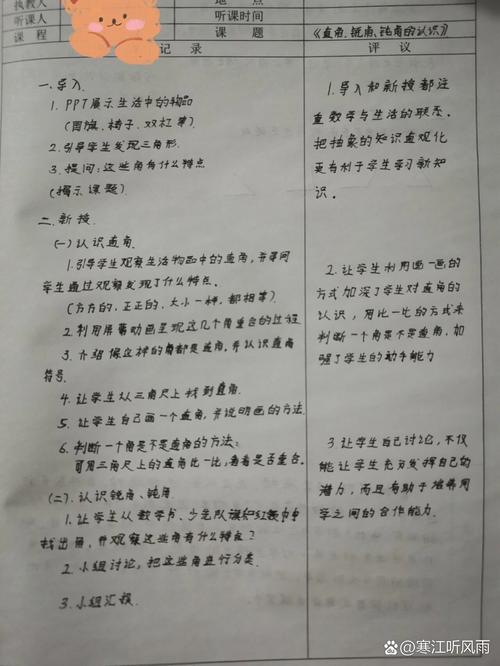 执教人
地 点
听课人
听课时间
课 程
课 题
《直角、锐角、钝角的认识》
记 录
评 议
一.导入
1. PPT展示生活中的物品
(国旗、椅子、双杠等)
2. 引导学生发现三角形.
3. 提问:这些角有什么特点
(揭示课题)
二.新授.
(一)认识直角.
1.引导学生观察生活物品中的直角,并寻问
学生通过观察发现了什么特点.
(方方的,正正的,大小一样,都相等)
2. 利用屏幕动画呈现这几个角重合的过程
3. 介绍像这样的角都是直角,并认识直角
符号.
4. 让学生从三角尺上找到直角.
5. 让学生自己画一个直角,并说明画的方法.
6. 判断一个角是不是直角的方法:
可用三角尺上的直角比一比,看看是否重合.
(二).认识锐角、钝角.
1. 让学生从数学书、少先队旗和红领巾中
找出角,并观察这些角有什么特点?
2. 小组讨论,把这些角进行分类.
3. 小组汇报.
1. 导入和新授都注
重数学与生活的联系.
把抽象的知识直观化
更有利于学生学习新知
识.
2. 让学生利用画一画的
方式加深了学生对直角的
认识,用比一比的方式来
判断一个角是不是直角,加
强了学生的动手能力
3. 让学生自己讨论,不仅
能让学生充分发挥自己的
潜力,而且有助于培养同
学之间的合作能力.
头条 @寒江听风雨